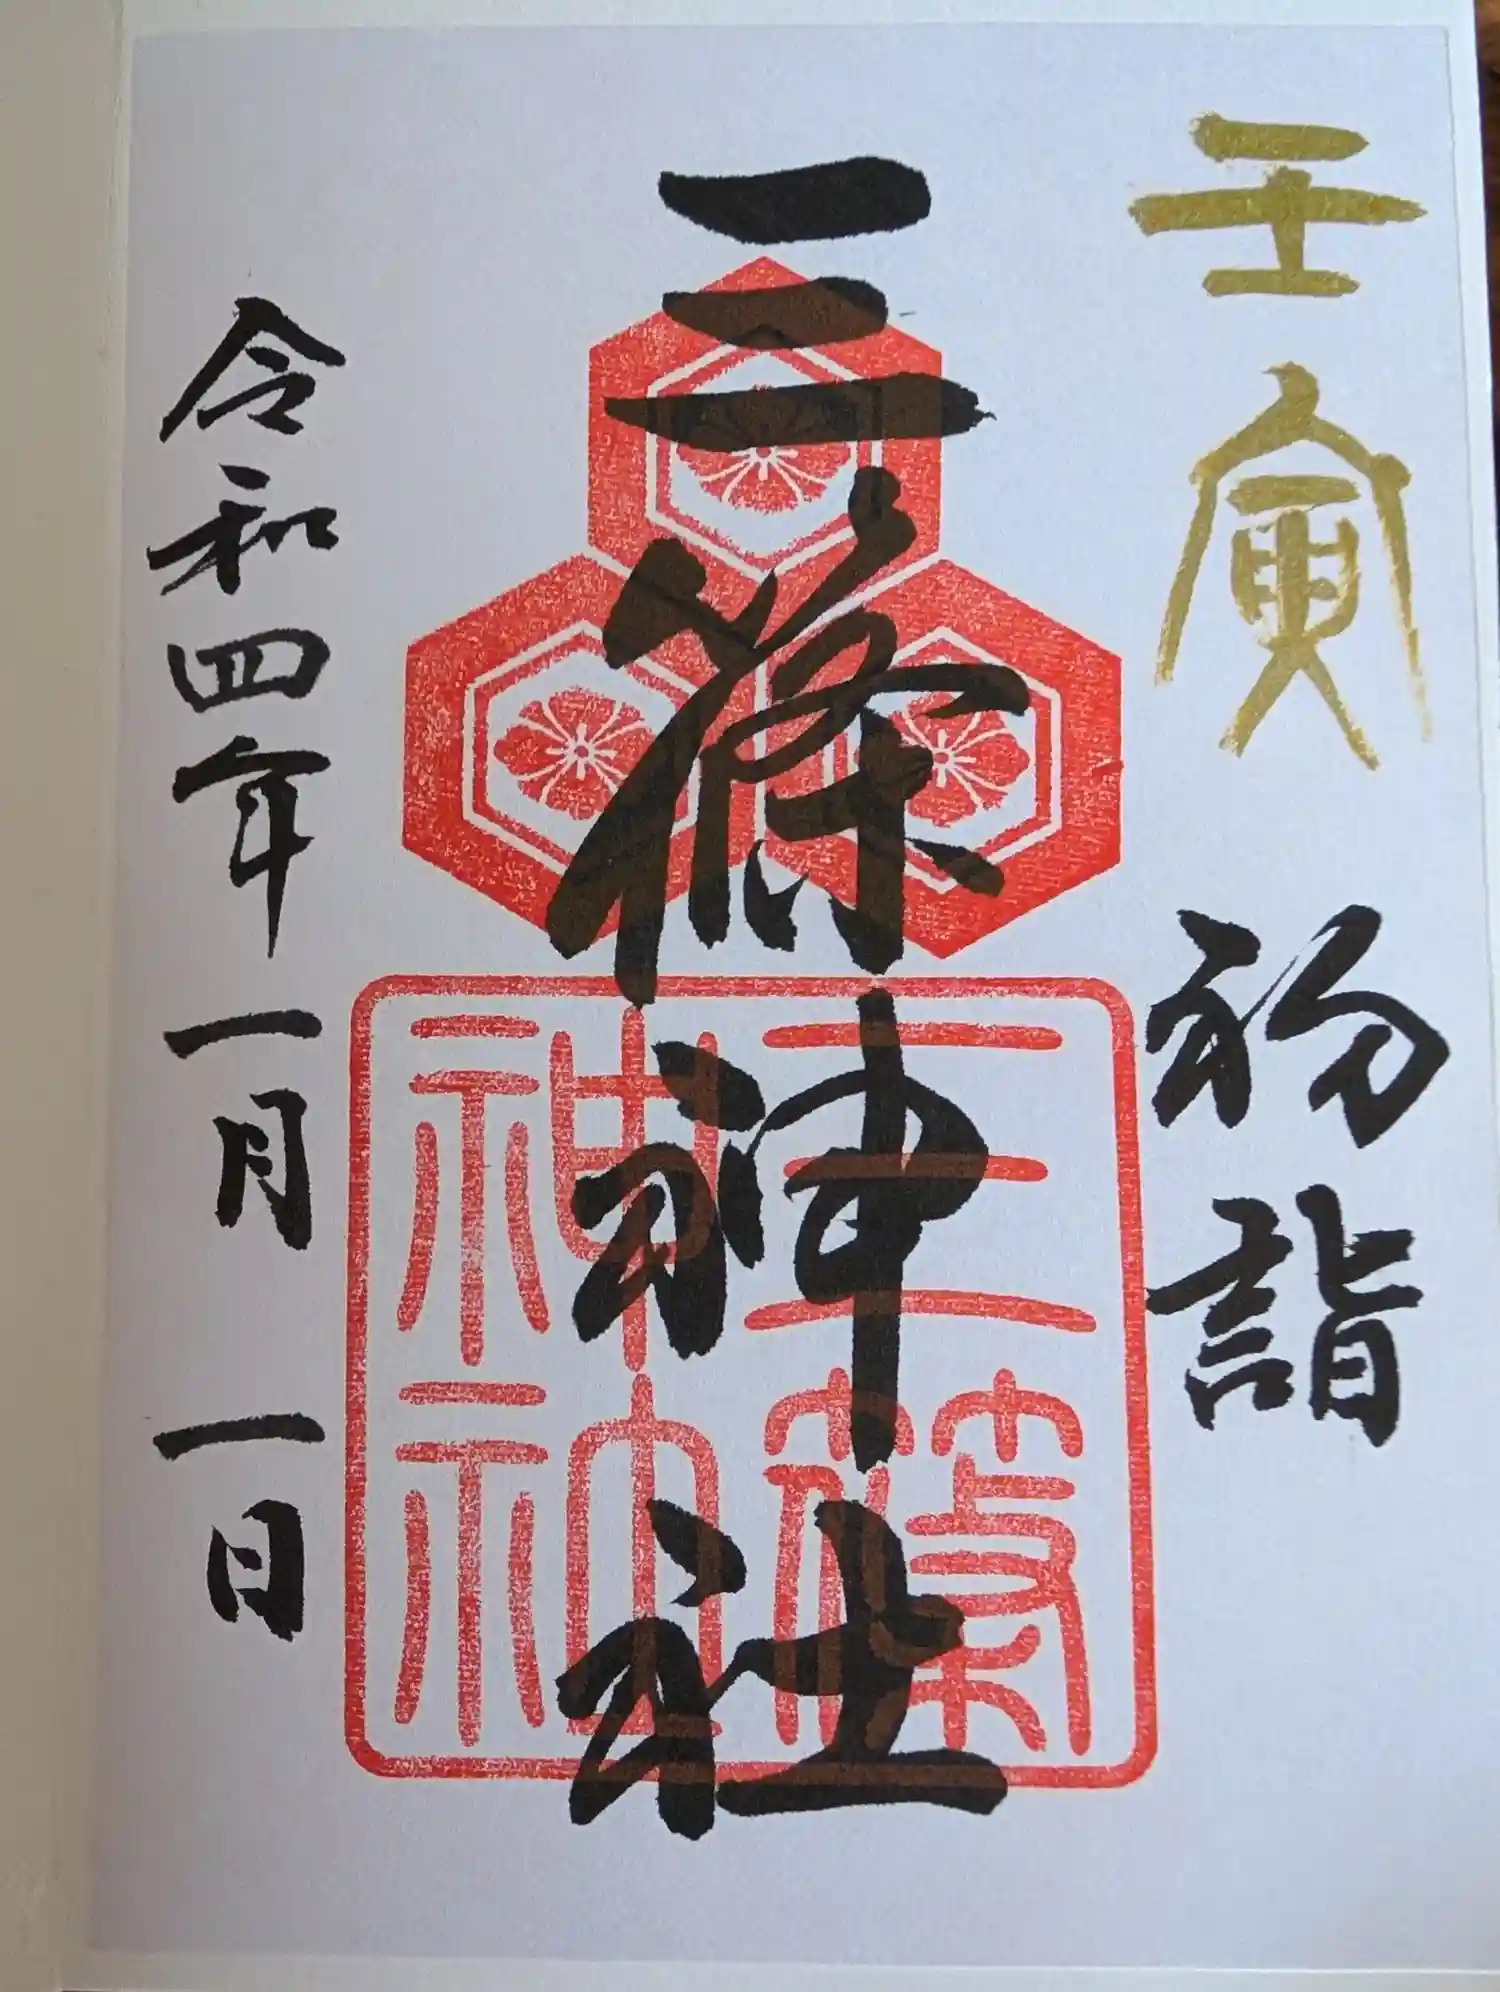 壬寅
初詣
三條神社
三條
神社
令和四年一月一日